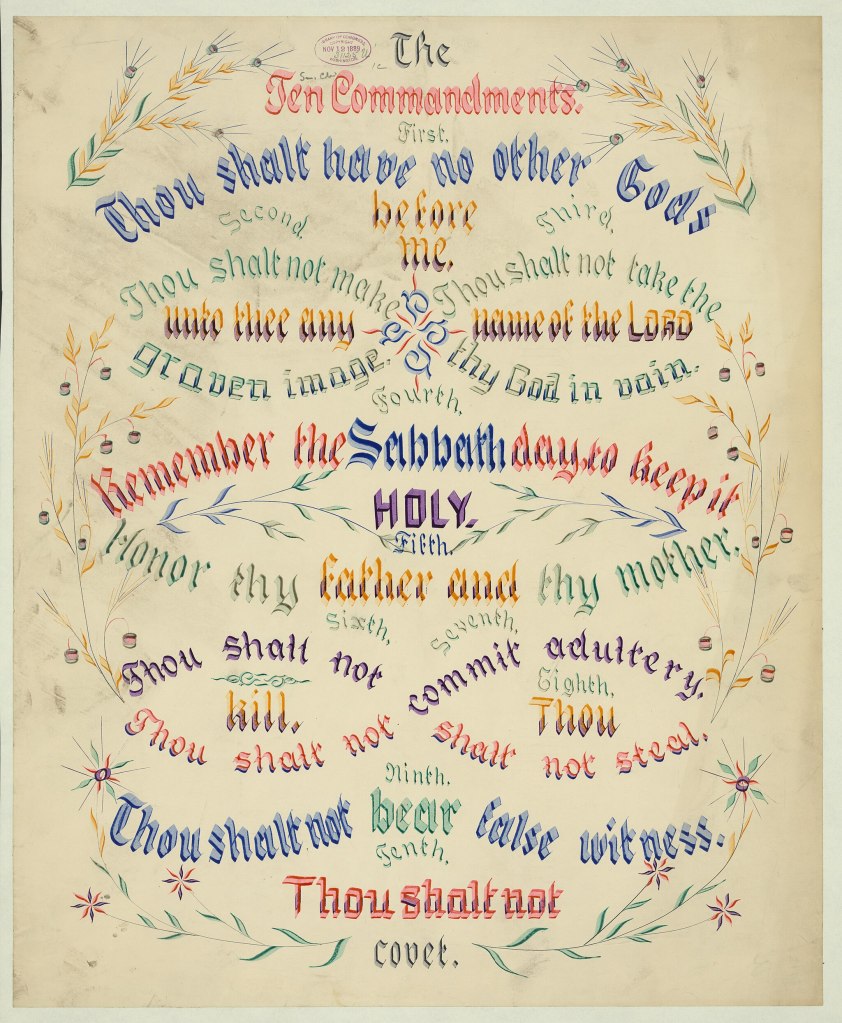 LIBRARY OF CONGRESS
COPYRIGHT
NOV 12 1889
WASHINGTON
The
Ten Commandments.
First.
Thou shalt have no other Gods
before
me.
Second.
Thou shalt not make
unto thee any
graven image.
Third.
Thou shalt not take the
name of the LORD
thy God in vain.
Fourth.
Remember the Sabbath day, to keep it
HOLY.
Fifth.
Honor thy father and thy mother.
Sixth,
Thou shalt not
kill.
Seventh,
Thou shalt not
commit adultery.
Eighth,
Thou
shalt not steal.
Ninth.
Thou shalt not bear false witness.
Tenth,
Thou shalt not
covet.